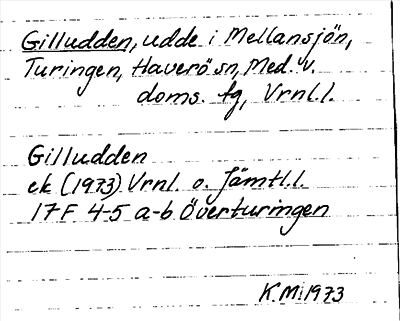 Gilludden, udde i Mellansjön,
Turingen, Haverö sn, Med. v.
doms. fg, Vrnl.l.
Gilludden
ek (1973) Vrnl. o. Jämtl.l.
17F 4-5 a-b Överturingen
K.Mi1973